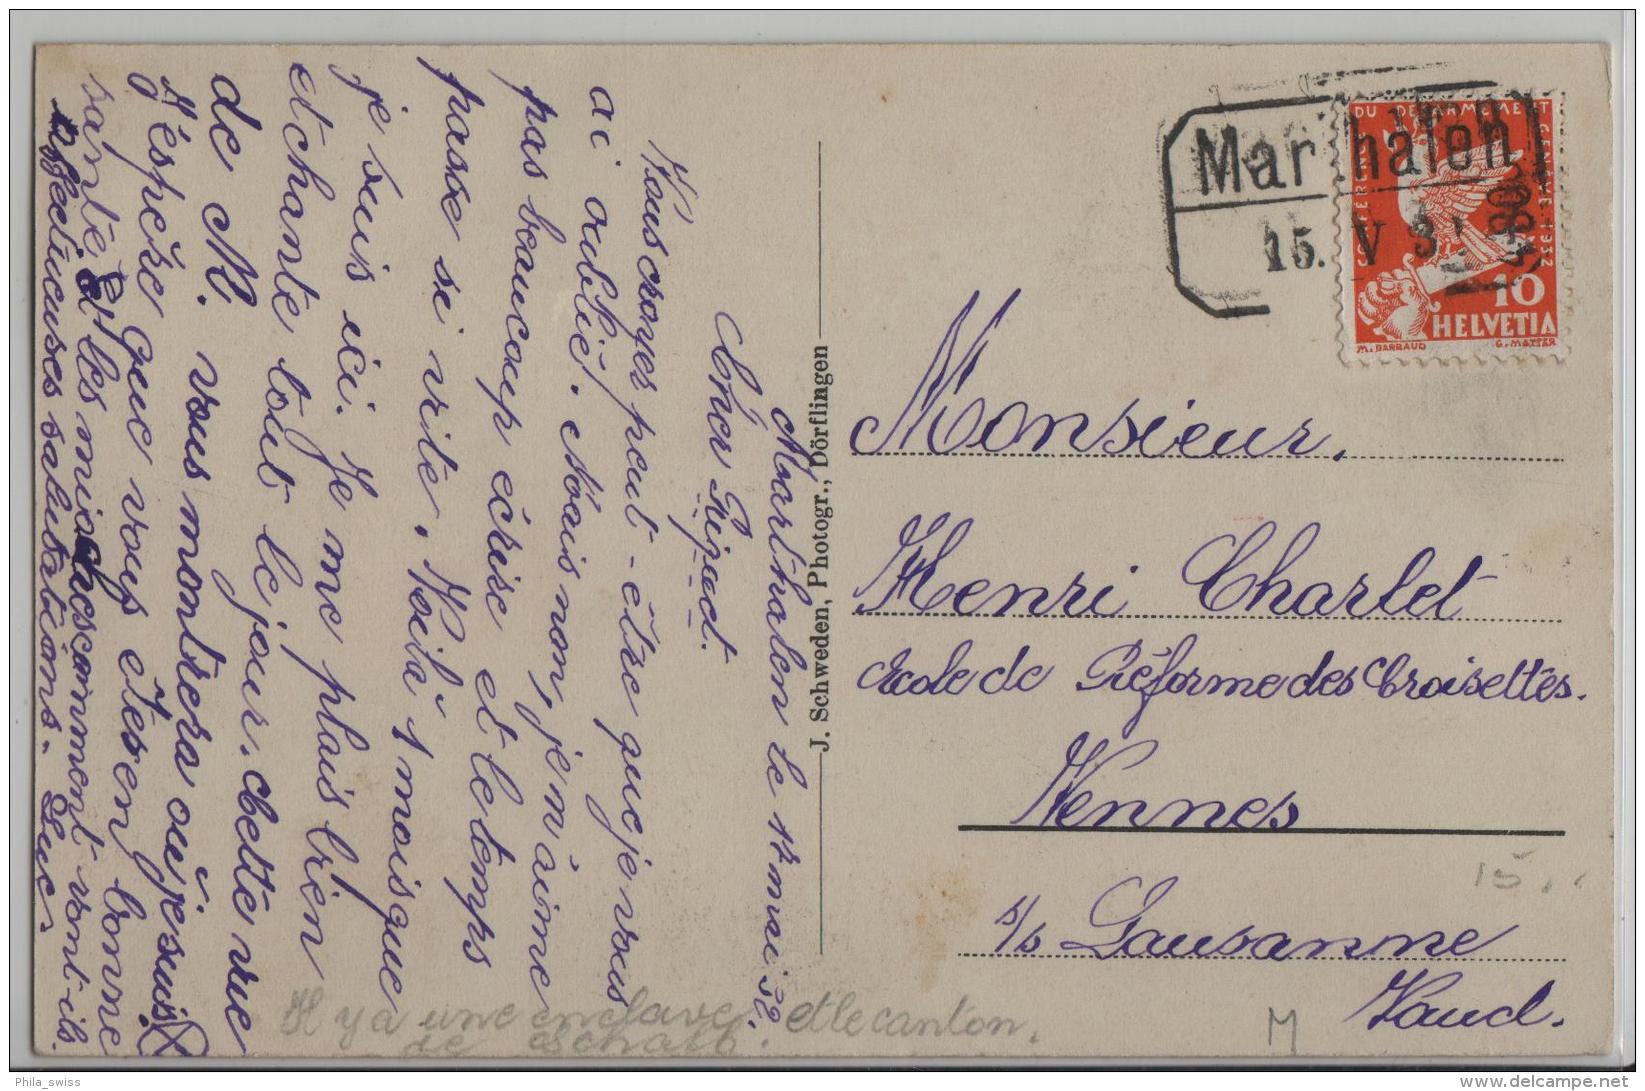 Marthalen le 14 mai 32.
Cher Pignet.
Vous croyez peut-être que je vous
ai oublié. Mais non, je n'aime
pas beaucoup écrire et le temps
passe si vite. Voilà 1 mois que
je suis ici. Je me plais bien
et chante tout le jour. Cette vue
de M. vous montrera où je suis.
J'éspère que vous etes en bonne
santé et les miochescomment vont-ils.
Affectueuses salutations. Luc.
Il y a une enclave et le canton.
de Schaff.
J. Schweden, Photogr., Dörflingen
Marthalen
15. V 3
CONFERENCE DU DESARMEMENT GENEVE 1932
10
HELVETIA
M. BARRAUD G. MATTER
Monsieur.
Henri Charlet
Ecole de Réforme des Croisettes.
Vennes
s/s Lausanne
Vaud.
15.
M
Phila_swiss
www.delcampe.net